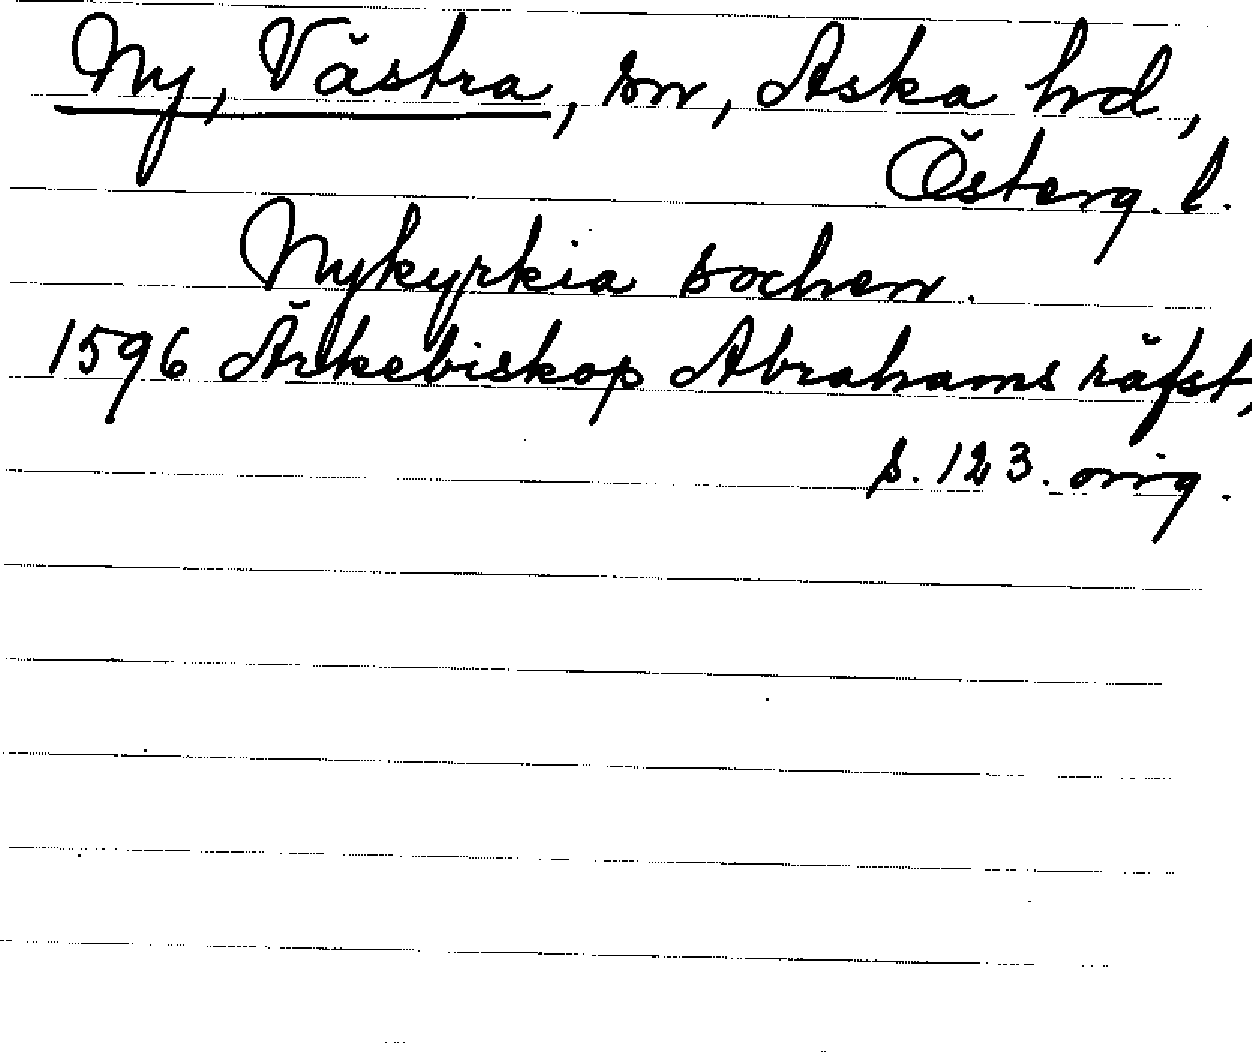 Ny, Västra, sn, Aska hd,
Österg. l.
Nykyrkia sochen.
1596 Ärkebiskop Abrahams räfst,
s. 123. orig.